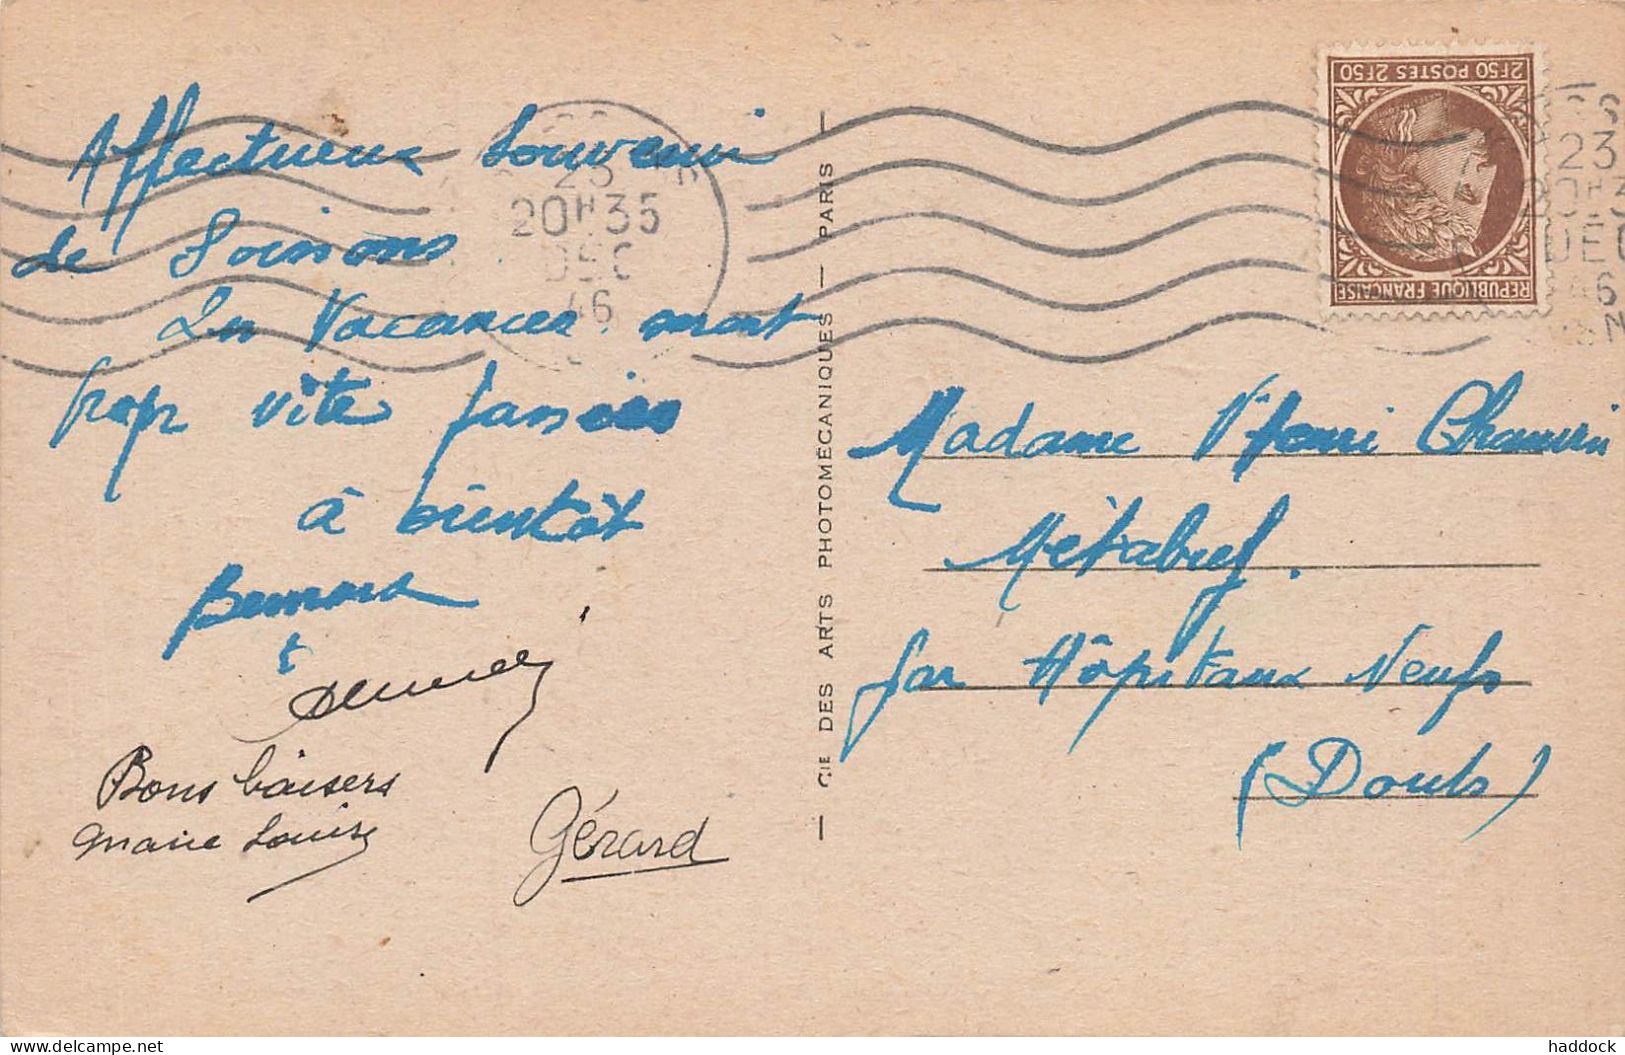 Affectueux souvenir
de Soissons
Les Vacances vont
trop vite
à bientôt
Bernard
et
Bons baisers
Marie Louise
Gérard
CIE DES ARTS PHOTOMÉCANIQUES — PARIS —
23
20H35
DEC
46
2F50 POSTES 2F50
REPUBLIQUE FRANÇAISE
23
20H3
DEC
46
Madame Vve Henri
Métabief.
par Hôpitaux Neufs
(Doubs)
haddock